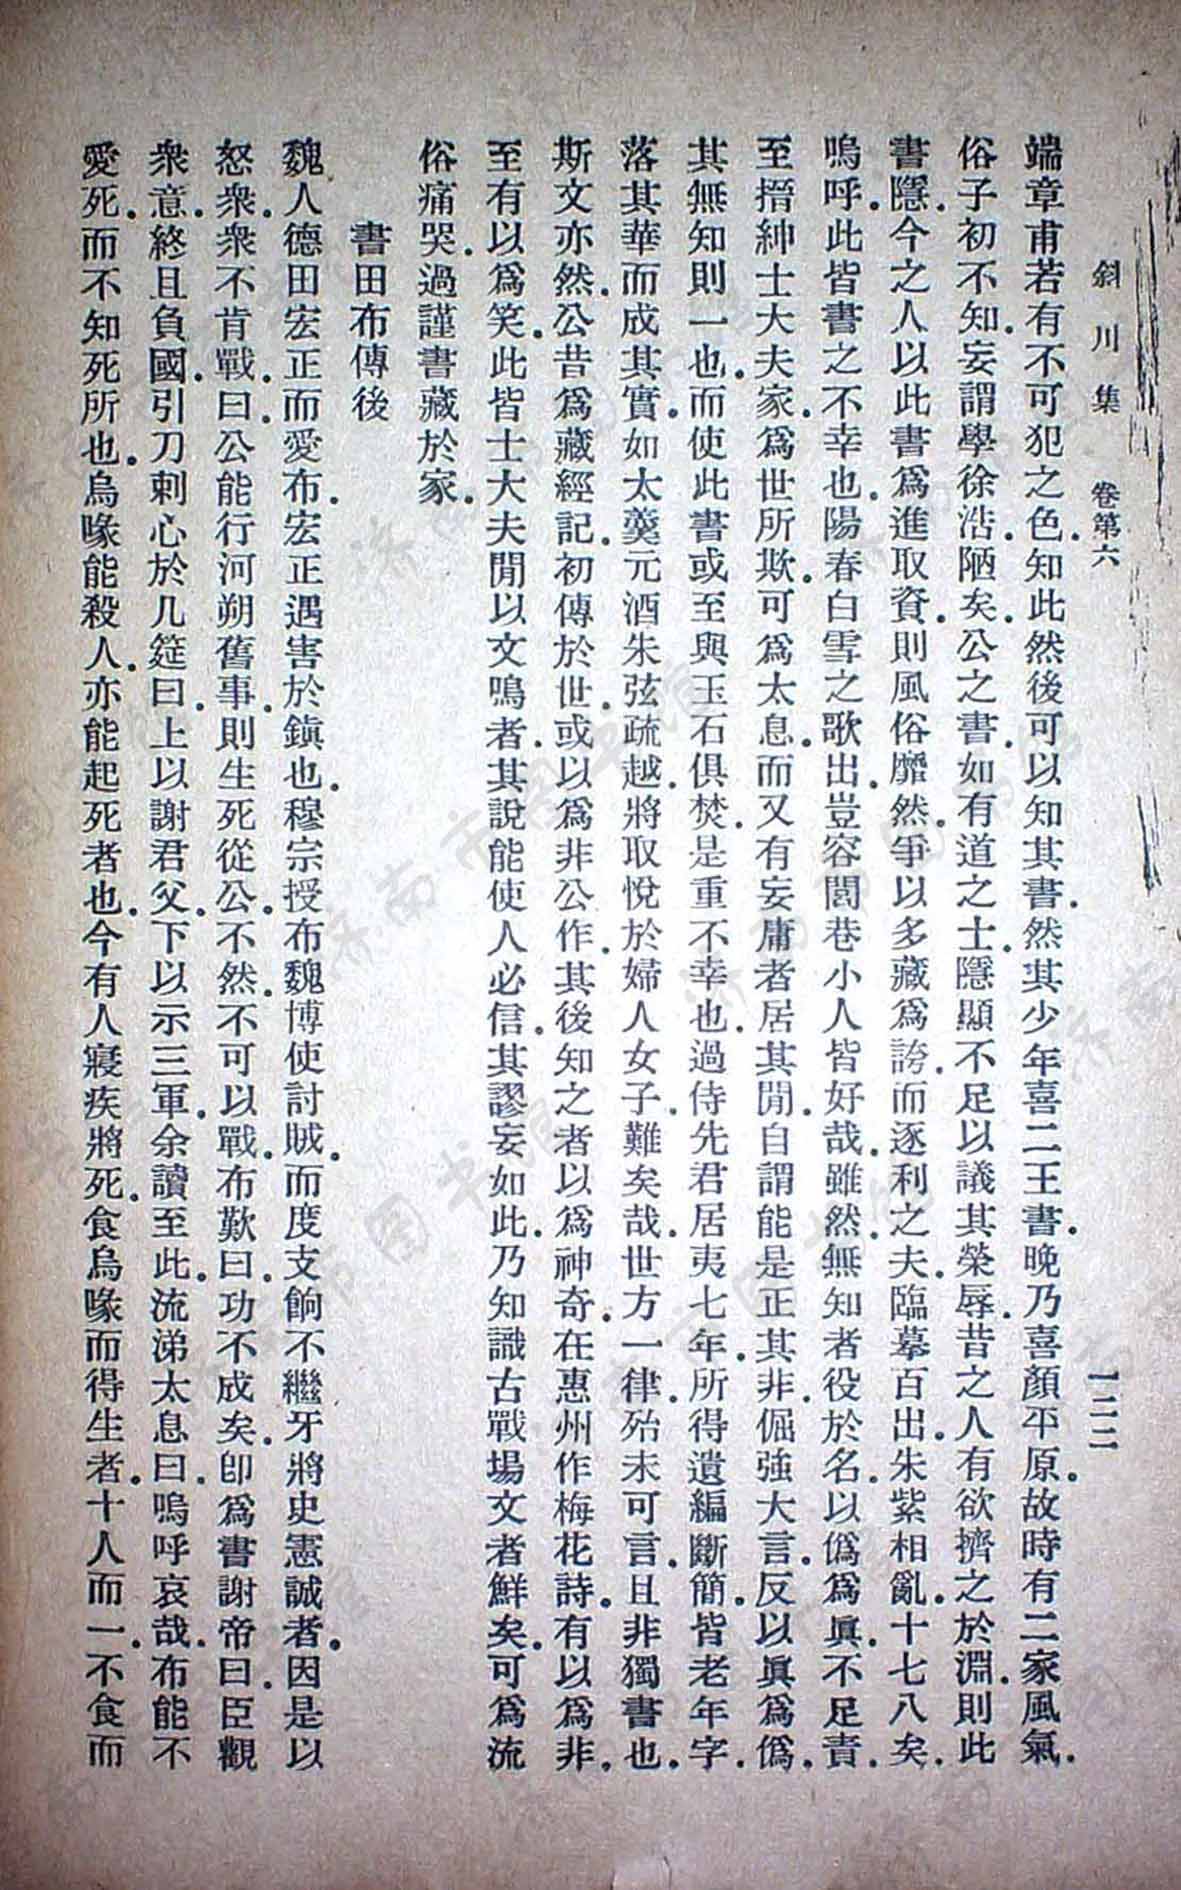 斜川集 卷第六 一二二
端章甫若有不可犯之色.知此然後可以知其書.然其少年喜二王書.晚乃喜顏平原.故時有二家風氣.
俗子初不知.妄謂學徐浩.陋矣.公之書.如有道之士.隱顯不足以議其榮辱.昔之人有欲擠之於淵.則此
書隱.今之人以此書爲進取資.則風俗靡然.爭以多藏爲誇.而逐利之夫.臨摹百出.朱紫相亂.十七八矣.
嗚呼.此皆書之不幸也.陽春白雪之歌出.豈容閭巷小人皆好哉.雖然.無知者役於名.以僞爲眞.不足責.
至搢紳士大夫家.爲世所欺.可爲太息.而又有妄庸者居其閒.自謂能是正其非.倔強大言.反以眞爲僞.
其無知則一也.而使此書或至與玉石俱焚.是重不幸也.過侍先君居夷七年.所得遺編斷簡.皆老年字.
落其華而成其實.如太羹元酒朱弦疏越.將取悅於婦人女子.難矣哉.世方一律.殆未可言.且非獨書也.
斯文亦然.公昔爲藏經記.初傳於世.或以爲非公作.其後知之者以爲神奇.在惠州作梅花詩.有以爲非.
至有以爲笑.此皆士大夫閒以文鳴者.其說能使人必信.其謬妄如此.乃知識古戰場文者鮮矣.可爲流
俗痛哭.過謹書藏於家.
書田布傳後
魏人德田宏正而愛布.宏正遇害於鎭也.穆宗授布魏博使討賊.而度支餉不繼牙將史憲誠者.因是以
怒衆.衆不肯戰.曰.公能行河朔舊事.則生死從公.不然.不可以戰.布歎曰.功不成矣.卽爲書謝帝曰.臣觀
衆意.終且負國.引刀刺心於几筵曰.上以謝君父.下以示三軍.余讀至此.流涕太息曰.嗚呼哀哉.布能不
愛死.而不知死所也.烏喙能殺人.亦能起死者也.今有人寢疾將死.食烏喙而得生者.十人而一.不食而